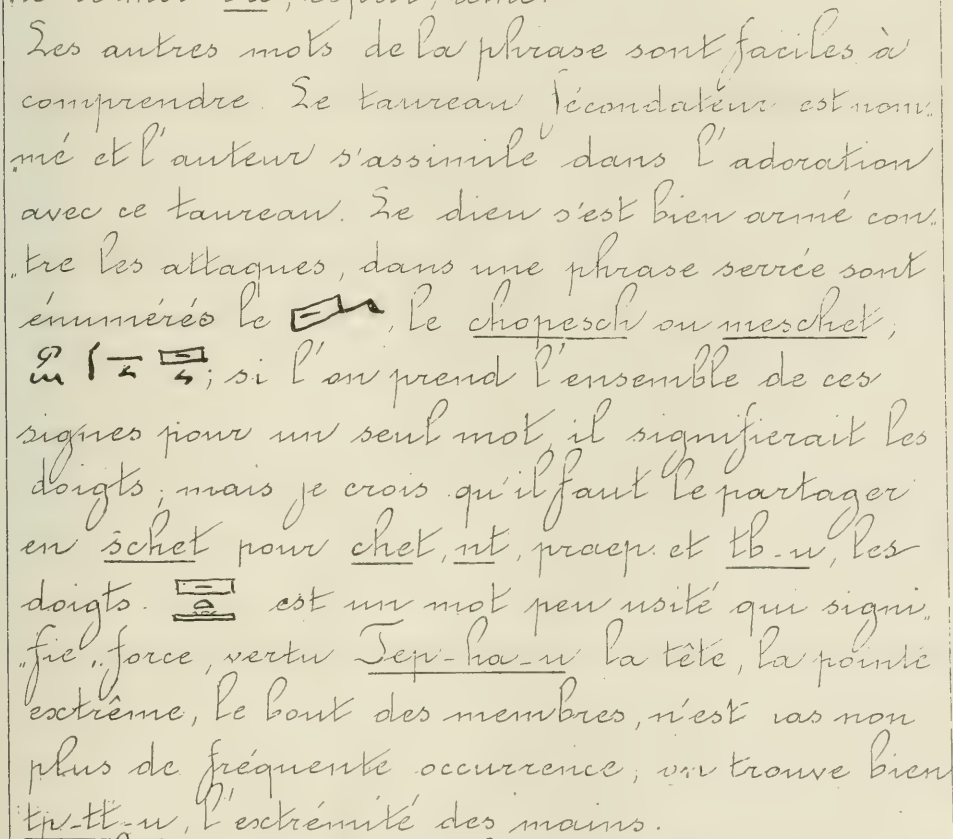 Les autres mots de la phrase sont faciles à
comprendre. Le taureau fécondateur est nom„
„mé et l'auteur s'assimile dans l'adoration
avec ce taureau. Le dieu s'est bien armé con„
„tre les attaques, dans une phrase serrée sont
énumérés le , le chopesch ou meschet,
; si l'on prend l'ensemble de ces
signes pour un seul mot, il signifierait les
doigts; mais je crois qu'il faut le partager
en schet pour chet, nt, praep. et tb-u, les
doigts. est un mot peu usité qui signi„
„fie „force, vertu Tep-ha-u la tête, la pointe
extrême, le bout des membres, n'est pas non
plus de fréquente occurrence; on trouve bien
tp-tt-u, l'extrémité des mains.